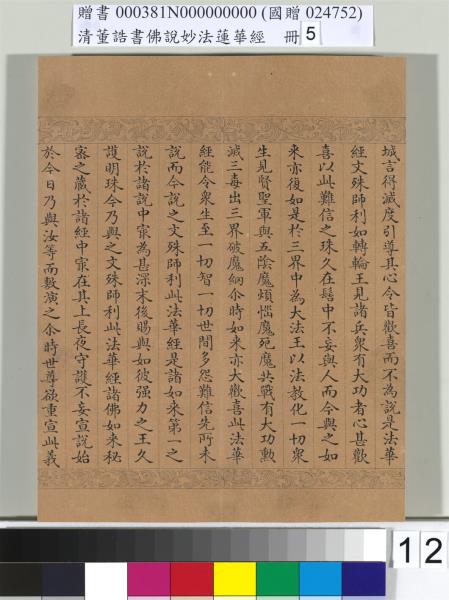 贈書 000381N000000000 (國贈 024752)
清董誥書佛說妙法蓮華經 冊 5
城言得滅度引導其心令皆歡喜而不為說是法華
經文殊師利如轉輪王見諸兵眾有大功者心甚歡
喜以此難信之珠久在髻中不妄與人而今與之如
來亦復如是於三界中為大法王以法教化一切眾
生見賢聖軍與五陰魔煩惱魔死魔共戰有大功勳
滅三毒出三界破魔網尒時如來亦大歡喜此法華
經能令眾生至一切智一切世間多怨難信先所未
說而今說之文殊師利此法華經是諸如來第一之
說於諸說中㝡為甚深末後賜與如彼强力之王久
護明珠今乃與之文殊師利此法華經諸佛如來秘
密之藏於諸經中㝡在其上長夜守護不妄宣說始
於今日乃與汝等而敷演之尒時世尊欲重宣此義
12